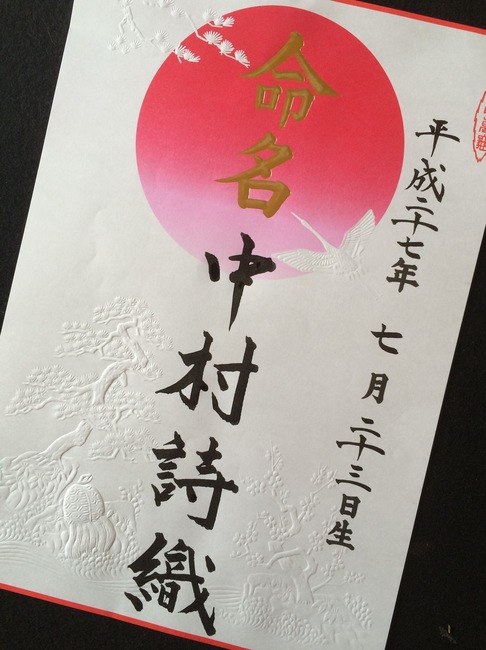 平成二十七年 七月二十三日生
命名
中村詩織